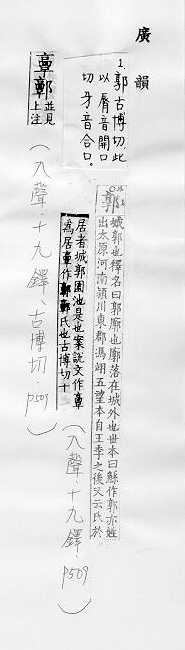 廣韻
1.郭古博切此
以脣音開口
切牙音合口。
郭 城郭也釋名曰郭廓也廓落在城外也世本曰鯀作郭亦姓
出太原河南潁川東郡馮翊五望本自王季之後又云氏於
居者城郭園池是也案說文作𩫏
爲居𩫏作氏也古博切十
(入聲.十九鐸. p509)
並見
上注
(入聲.十九鐸、古博切.p509)